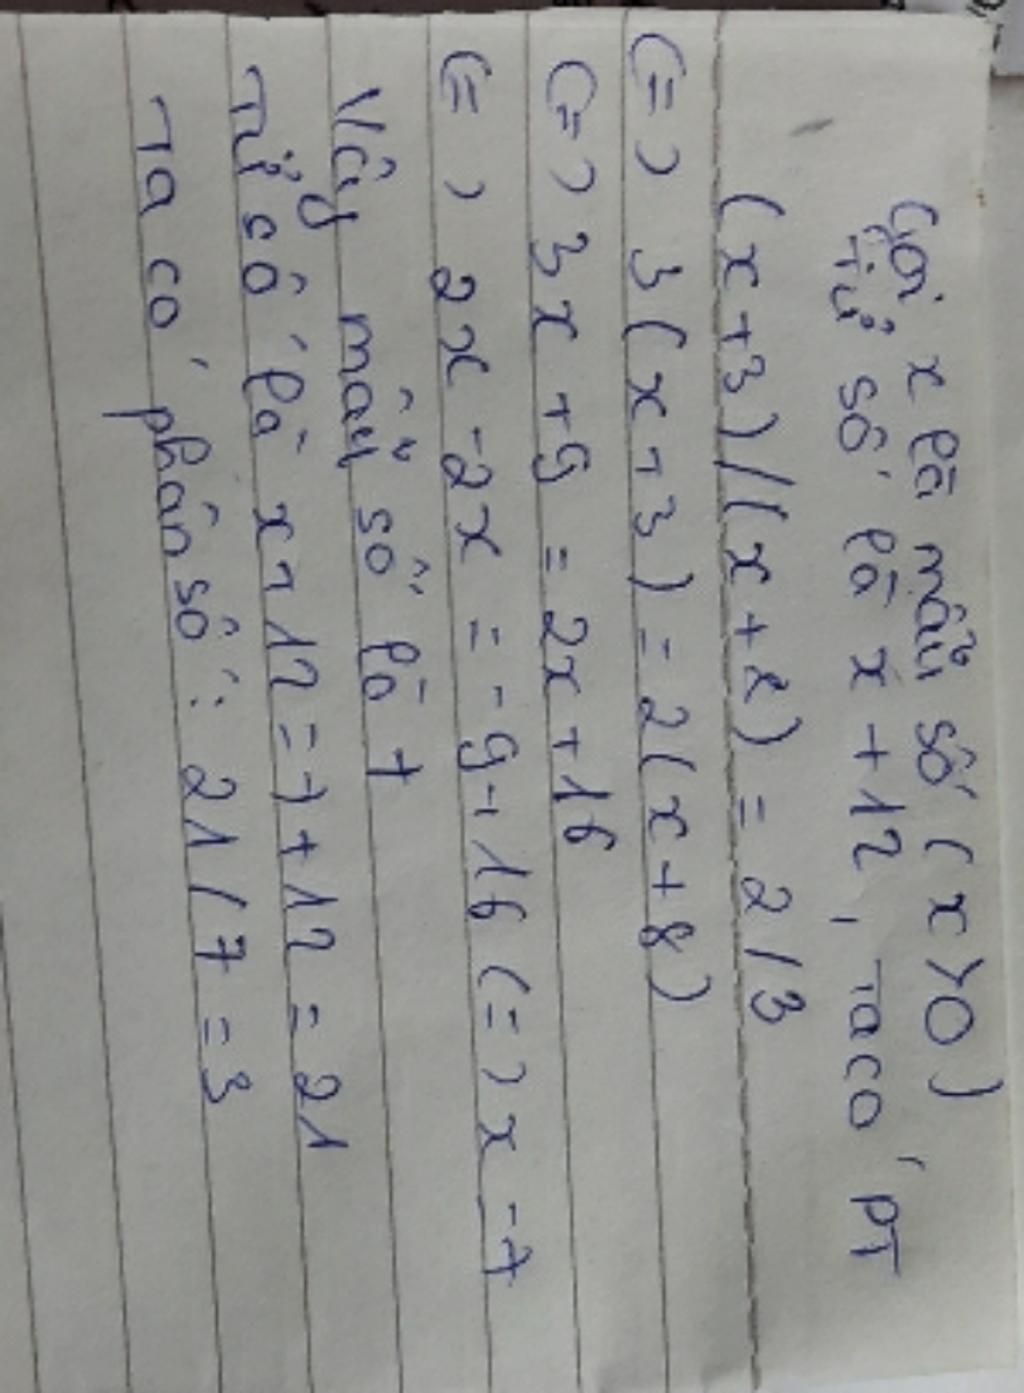 Gọi x là mẫu số (x>0)
Tử số là x+12, ta có PT
(x+3)/(x+8) = 2/3
(=) 3(x+3) = 2(x+8)
(=) 3x+9 = 2x+16
(=) 2x-2x = -9+16 (=) x=7
Vậy mẫu số là 7
Tử số là x+12=7+12=21
Ta có phân số: 21/7=3